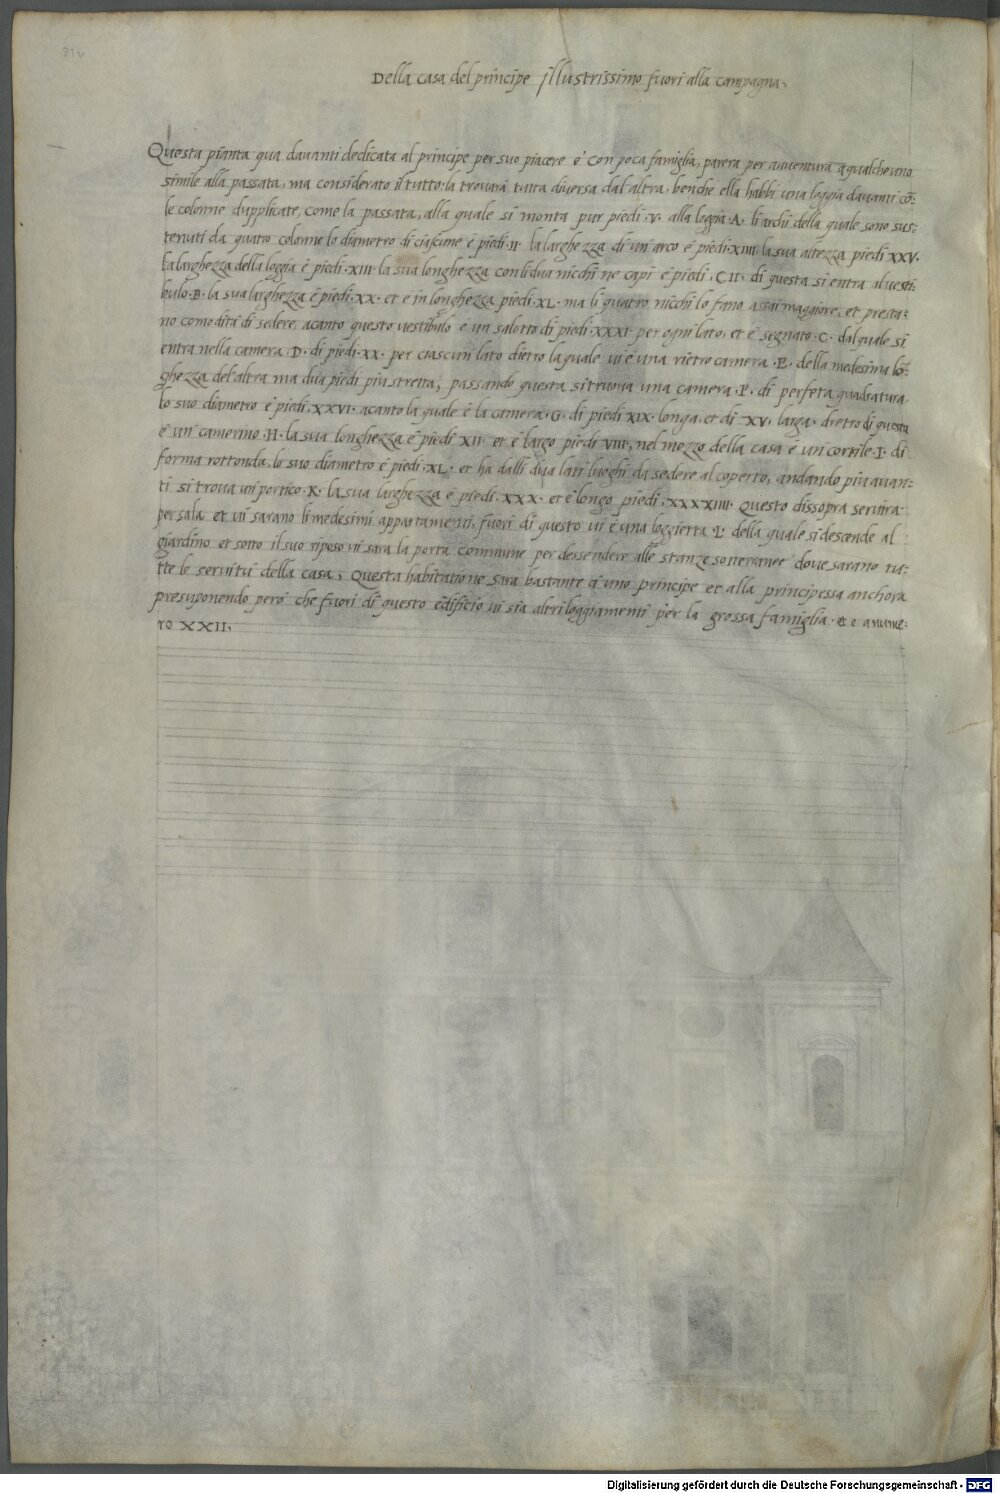 21v
Della casa del principe jllustrissimo fuori alla campagna.
Questa pianta qua davanti dedicata al principe per suo piacere è con poca famiglia, parera per avventura a qualche uno
simile alla passata, ma considerato il tutto: la trovarà tutta diversa dal'altra, benche ella habbi una loggia davanti cō-
le colonne dupplicate, come la passata, alla quale si monta pur piedi ·V· alla loggia ·A· li archi della quale sono sus-
tenuti da quatro colonne lo diametro di ciascune è piedi ·II· la larghezza di un'arco è piedi ·XIIII· la sua altezza piedi XXV·
La larghezza della loggia è piedi ·XIII· la sua longhezza con li dua nicchi ne capi è piedi ·CII· di questa si entra al vesti
bulo ·B· la sua larghezza è piedi ·XX· et è in longhezza piedi ·XL· ma li quatro nicchi lo fano assai maggiore, et presta-
no comodità di sedere, acanto questo vestibulo è un salotto di piedi ·XXXI· per ogni lato, et è segnato ·C· dal quale si
entra nella camera ·D· di piedi ·XX· per ciascun lato dietro la quale vi è una rietro camera ·E· della medesima lō-
ghezza del'altra ma dua piedi piu stretta, passando questa si truova una camera ·F· di perfeta quadratura
lo suo diametro è piedi ·XXVI· acanto la quale è la camera ·G· di piedi XIX· longa, et di XV· larga· dretro di questa
è un camerino ·H· la sua longhezza è piedi XII· et è largo piedi VIII·, nel mezzo della casa è un cortile ·I· di
forma rottonda, lo suo diametro è piedi ·XL· et ha dalli dua lati luoghi da sedere al coperto, andando più avan-
ti si trova un portico ·K· la sua larghezza è piedi ·XXX· et è longo piedi ·XXXXIIII· Questo dissopra servira
per sala et vi sarano li medesimi appartamenti, fuori di questo vi è una loggietta ·L· della quale si descende al
giardino et sotto il suo riposo vi sara la porta commune per dessendere alle stanze sotteranee dove sarano tu-
tte le servitu della casa, Questa habitatione sara bastante a uno principe et alla principessa anchora
presuponendo però che fuori di questo edificio vi sia altri loggiamenti per la grossa famiglia· et è a nume-
ro XXII·
Digitalisierung gefördert durch die Deutsche Forschungsgemeinschaft - DFG